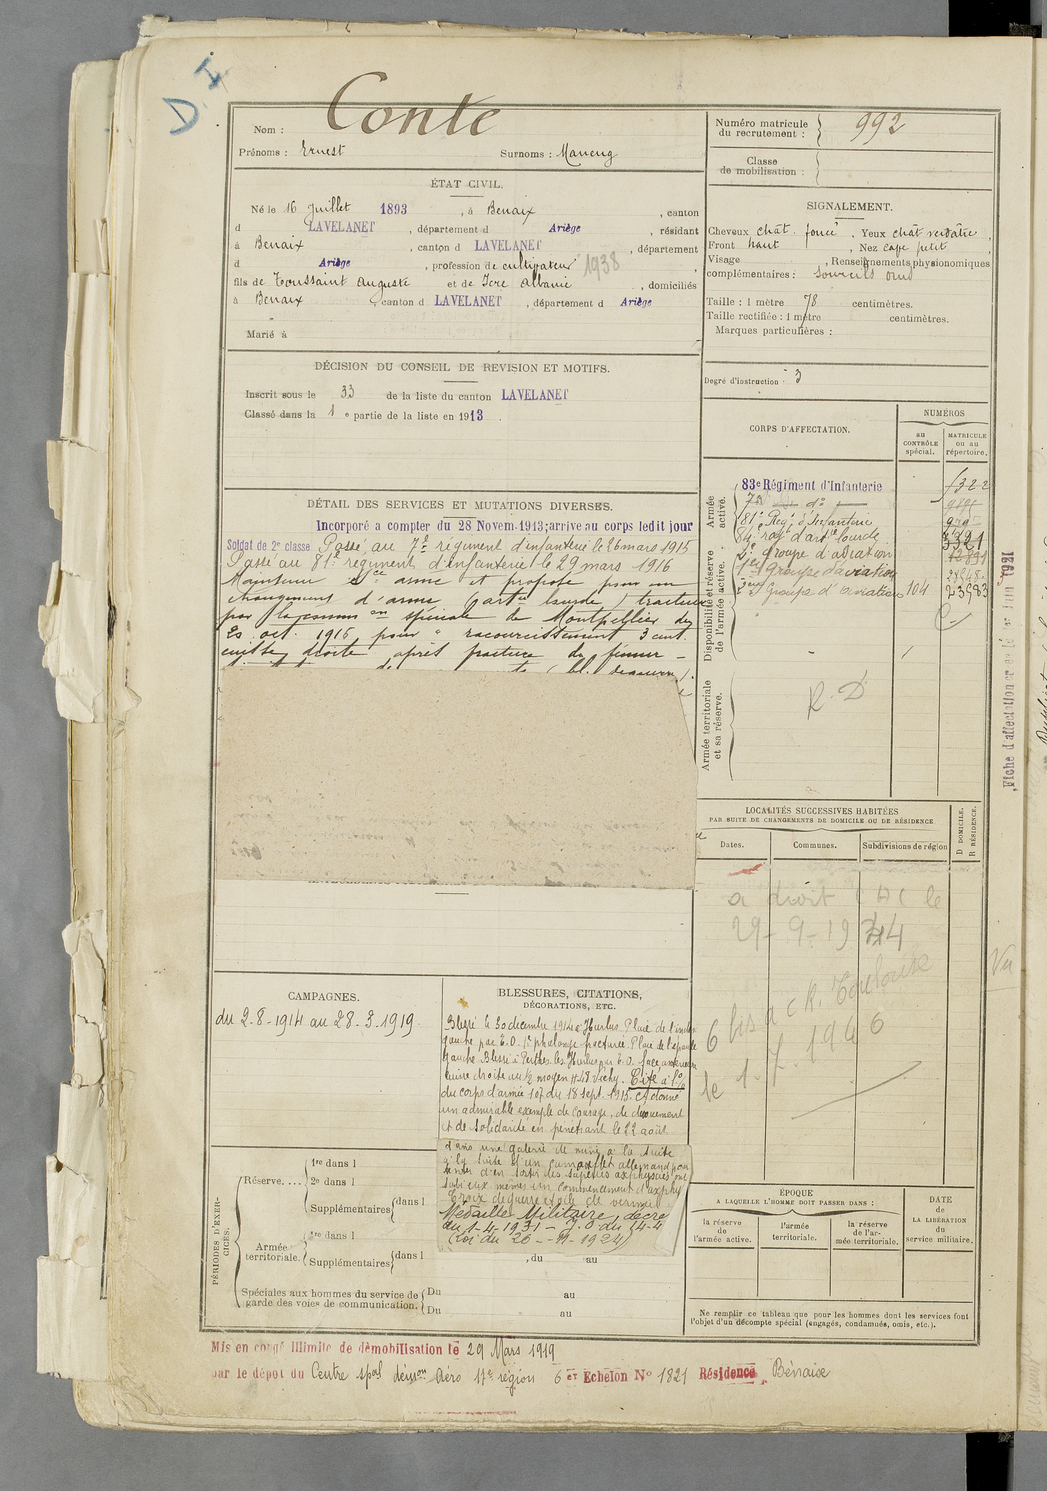 D. I
Conte
Nom :
Prénoms : Ernest Surnoms :
Numéro matricule du recrutement : 992
Classe de mobilisation :
ÉTAT CIVIL.
Né le 16 Juillet 1893, à Benaix, canton
d LAVELANET, département d Ariège, résidant
à Benaix, canton d LAVELANET, département
d Ariège, profession de cultivateur 1938
fils de Toussaint Auguste et de Albanie, domiciliés
à Benaix canton d LAVELANET, département d Ariège
Marié à
SIGNALEMENT.
Cheveux chât. foncé. Yeux chât verdâtre,
Front haut, Nez petit
Visage, Renseignements physionomiques
complémentaires : sourcils
Taille : 1 mètre 78 centimètres.
Taille rectifiée : 1 mètre centimètres.
Marques particulières :
Degré d'instruction : 3
DÉCISION DU CONSEIL DE REVISION ET MOTIFS.
Inscrit sous le 33 de la liste du canton LAVELANET
Classé dans la 1e partie de la liste en 1913.
DÉTAIL DES SERVICES ET MUTATIONS DIVERSES.
Incorporé a compter du 28 Novem. 1913; arrive au corps ledit jour
Soldat de 2e classe Passé au 7e régiment d'infanterie le 26 mars 1915
Passé au 81e régiment d'infanterie le 29 mars 1916
Maintenu sce armé et proposé pour un
changement d'arme (artie lourde) tracteurs
par la common spéciale de Montpellier du
20 oct. 1916 pour " racourcissement 3 cent.
cuisse droite après fracture du fémur -
CORPS D'AFFECTATION.
NUMÉROS
au CONTRÔLE spécial.
MATRICULE ou au répertoire.
Armée active.
83e Régiment d'Infanterie 1322
7e do
81e Reg. d'Infanterie
84e régt d'artie lourde
2e groupe d'aviation
1er groupe d'aviation
groupe d'aviation 104 23983
Disponibilité et réserve de l'armée active.
Armée territoriale et sa réserve.
R. D
Fiche d'affectation 1921
LOCALITÉS SUCCESSIVES HABITÉES
PAR SUITE DE CHANGEMENTS DE DOMICILE OU DE RÉSIDENCE.
Dates. Communes. Subdivisions de région
D DOMICILE. R RÉSIDENCE.
a droit C A C le
29-9-1944
6 bis a c R. Toulouse
le 1.7.1946
CAMPAGNES.
du 2-8-1914 au 28-3-1919.
BLESSURES, CITATIONS,
DÉCORATIONS, ETC.
Blessé le 30 décembre 1914 à Hurlus. Plaie de l'index
gauche par E.O. 1e phalange fracturée. Plaie de l'épaule
gauche. Blessé à Perthes les Hurlus par E.O. face antérieure
cuisse droite au 1/3 moyen Vichy. Cité à l'O
du corps d'armée 107 du 18 Sept. 1915. A donné
un admirable exemple de courage, de dévouement
et de solidarité en pénétrant le 22 août
dans une galerie de mine à la suite
d'un camouflet allemand pour
tenter d'en sortir des sapeurs asphyxiés ont
subi eux mêmes un commencement d'asphy
Croix de guerre étoile de vermeil.
Médaille Militaire, décret
du 1-4-1931 - J.O. du 14-4
(Loi du 26-11-1924)
PÉRIODES D'EXERCICES.
Réserve....
1re dans l
2e dans l
Supplémentaires dans l
Armée territoriale.
1re dans l
Supplémentaires dans l, du au
Spéciales aux hommes du service de garde des voies de communication.
Du au
Du au
ÉPOQUE
A LAQUELLE L'HOMME DOIT PASSER DANS :
la réserve de l'armée active.
l'armée territoriale.
la réserve de l'armée territoriale.
DATE DE LA LIBÉRATION du service militaire.
Ne remplir ce tableau que pour les hommes dont les services font
l'objet d'un décompte spécial (engagés, condamnés, omis, etc.).
Mis en congé illimité de démobilisation le 29 Mars 1919
par le dépôt du Centre spal démon Aéro 17e région 6 er Echelon No 1821 Résidence Bénaixe